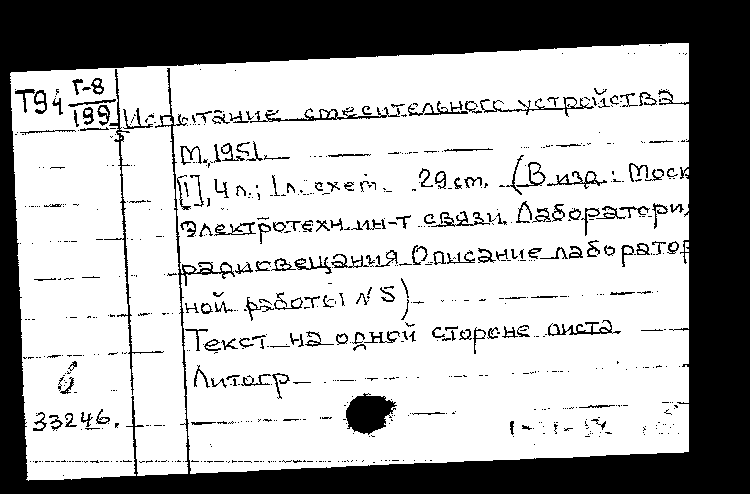 Т94 Г-8
199
5
Испытание смесительного устройства
М., 1951.
[1], 4 л.; 1 л. схем. 29 см. (В изд.: Моск
электротехн. ин-т связи. Лаборатория
радиовещания. Описание лаборатор
ной работы N 5)
Текст на одной стороне листа.
Литогр.
33246.